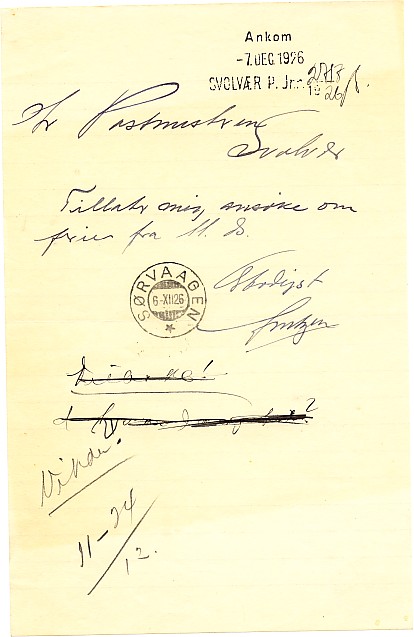 Ankom
-7.DEC.1926
SVOLVÆR P. Jnr. 2713
19 26
Hr Postmesteren
Svolvær
Tillater mig ansöke om
ferie fra 11. ds.
SØRVAAGEN
6-XII 26
Ærbødigst
Vikar?
11-24/12.